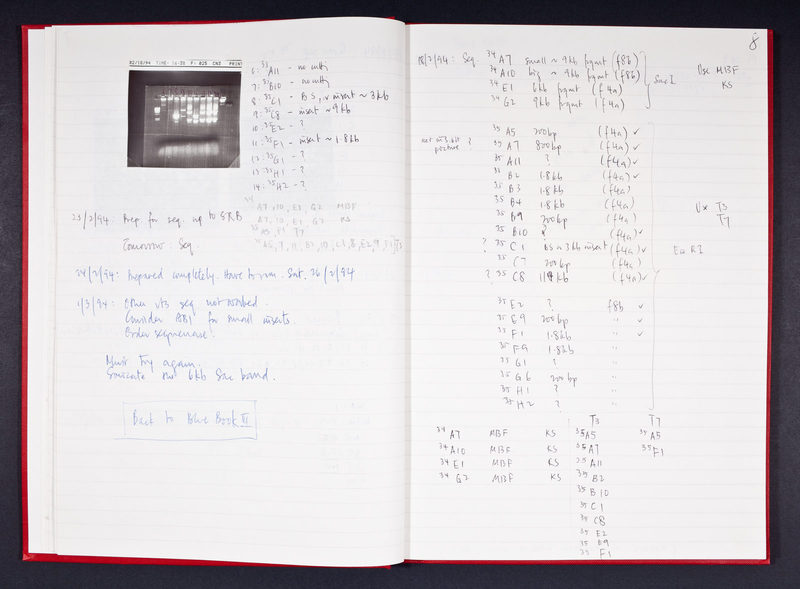 02/18/94 TIME: 16:20 F: 025 CNI PRINT
6. 35 A11 - no cutty
7. 35 B10 - no cutty
8. 35 C1 - BS, v insert ~ 3kb
9. 35 C8 - insert ~ 9kb
10. 35 E2 - ?
11. 35 F1 - insert ~ 1.8kb
12. 35 G1 - ?
13. 35 H1 - ?
14. 35 H2 - ?
34 A7, 10, E1, G2 MBF
23/2/94: Prep for seq. up to SRB
A7, 10, E1, G2 KS
35 A5, F1 T7
Tomorrow: Seq.
35 A5, 7, 11, B2, 10, C1, 8, E2, 9, F1 T3
24/2/94: Prepared completely. Have to run Sat. 26/2/94
1/3/94: Other vts seq not worked.
Consider BB1 for small inserts.
Order sequenase!
Must try again.
Sonicate the 6kb Sac band.
Back to Blue Book III
8
18/2/94: Seq. 34 A7 small ~ 9kb fragment (f8b)
34 A10 big ~ 9kb fragment (f8b)
34 E1 6kb fragment (f4a)
34 G2 9kb fragment (f4a)
Sac I
Use MBF
KS
35 A5 200bp (f4a) ✓
picture ? 35 A7 800bp (f4a) ✓
35 A11 ? (f4a) ✓
35 B2 1.8kb (f4a) ✓
35 B3 1.8kb (f4a)
35 B4 1.8kb (f4a)
35 B9 200bp (f4a)
35 B10 (f4a) ✓
Use T3
T7
? 35 C1 BS ~ 3kb insert (f4a) ✓
Eco RI
35 C7 200bp (f4a)
? 35 C8 (f4a) ✓
35 E2 ? f8b ✓
35 E9 200bp " ✓
35 F1 1.8kb " ✓
35 F9 1.8kb "
35 G1 ? "
35 G6 200bp "
35 H1 ? "
35 H2 ? "
T3 T7
34 A7 MBF KS 35 A5 35 A5
34 A10 MBF KS 35 A7 35 F1
34 E1 MBF KS 35 A11
34 G2 MBF KS 35 B2
35 B10
35 C1
35 C8
35 E2
35 E9
35 F1